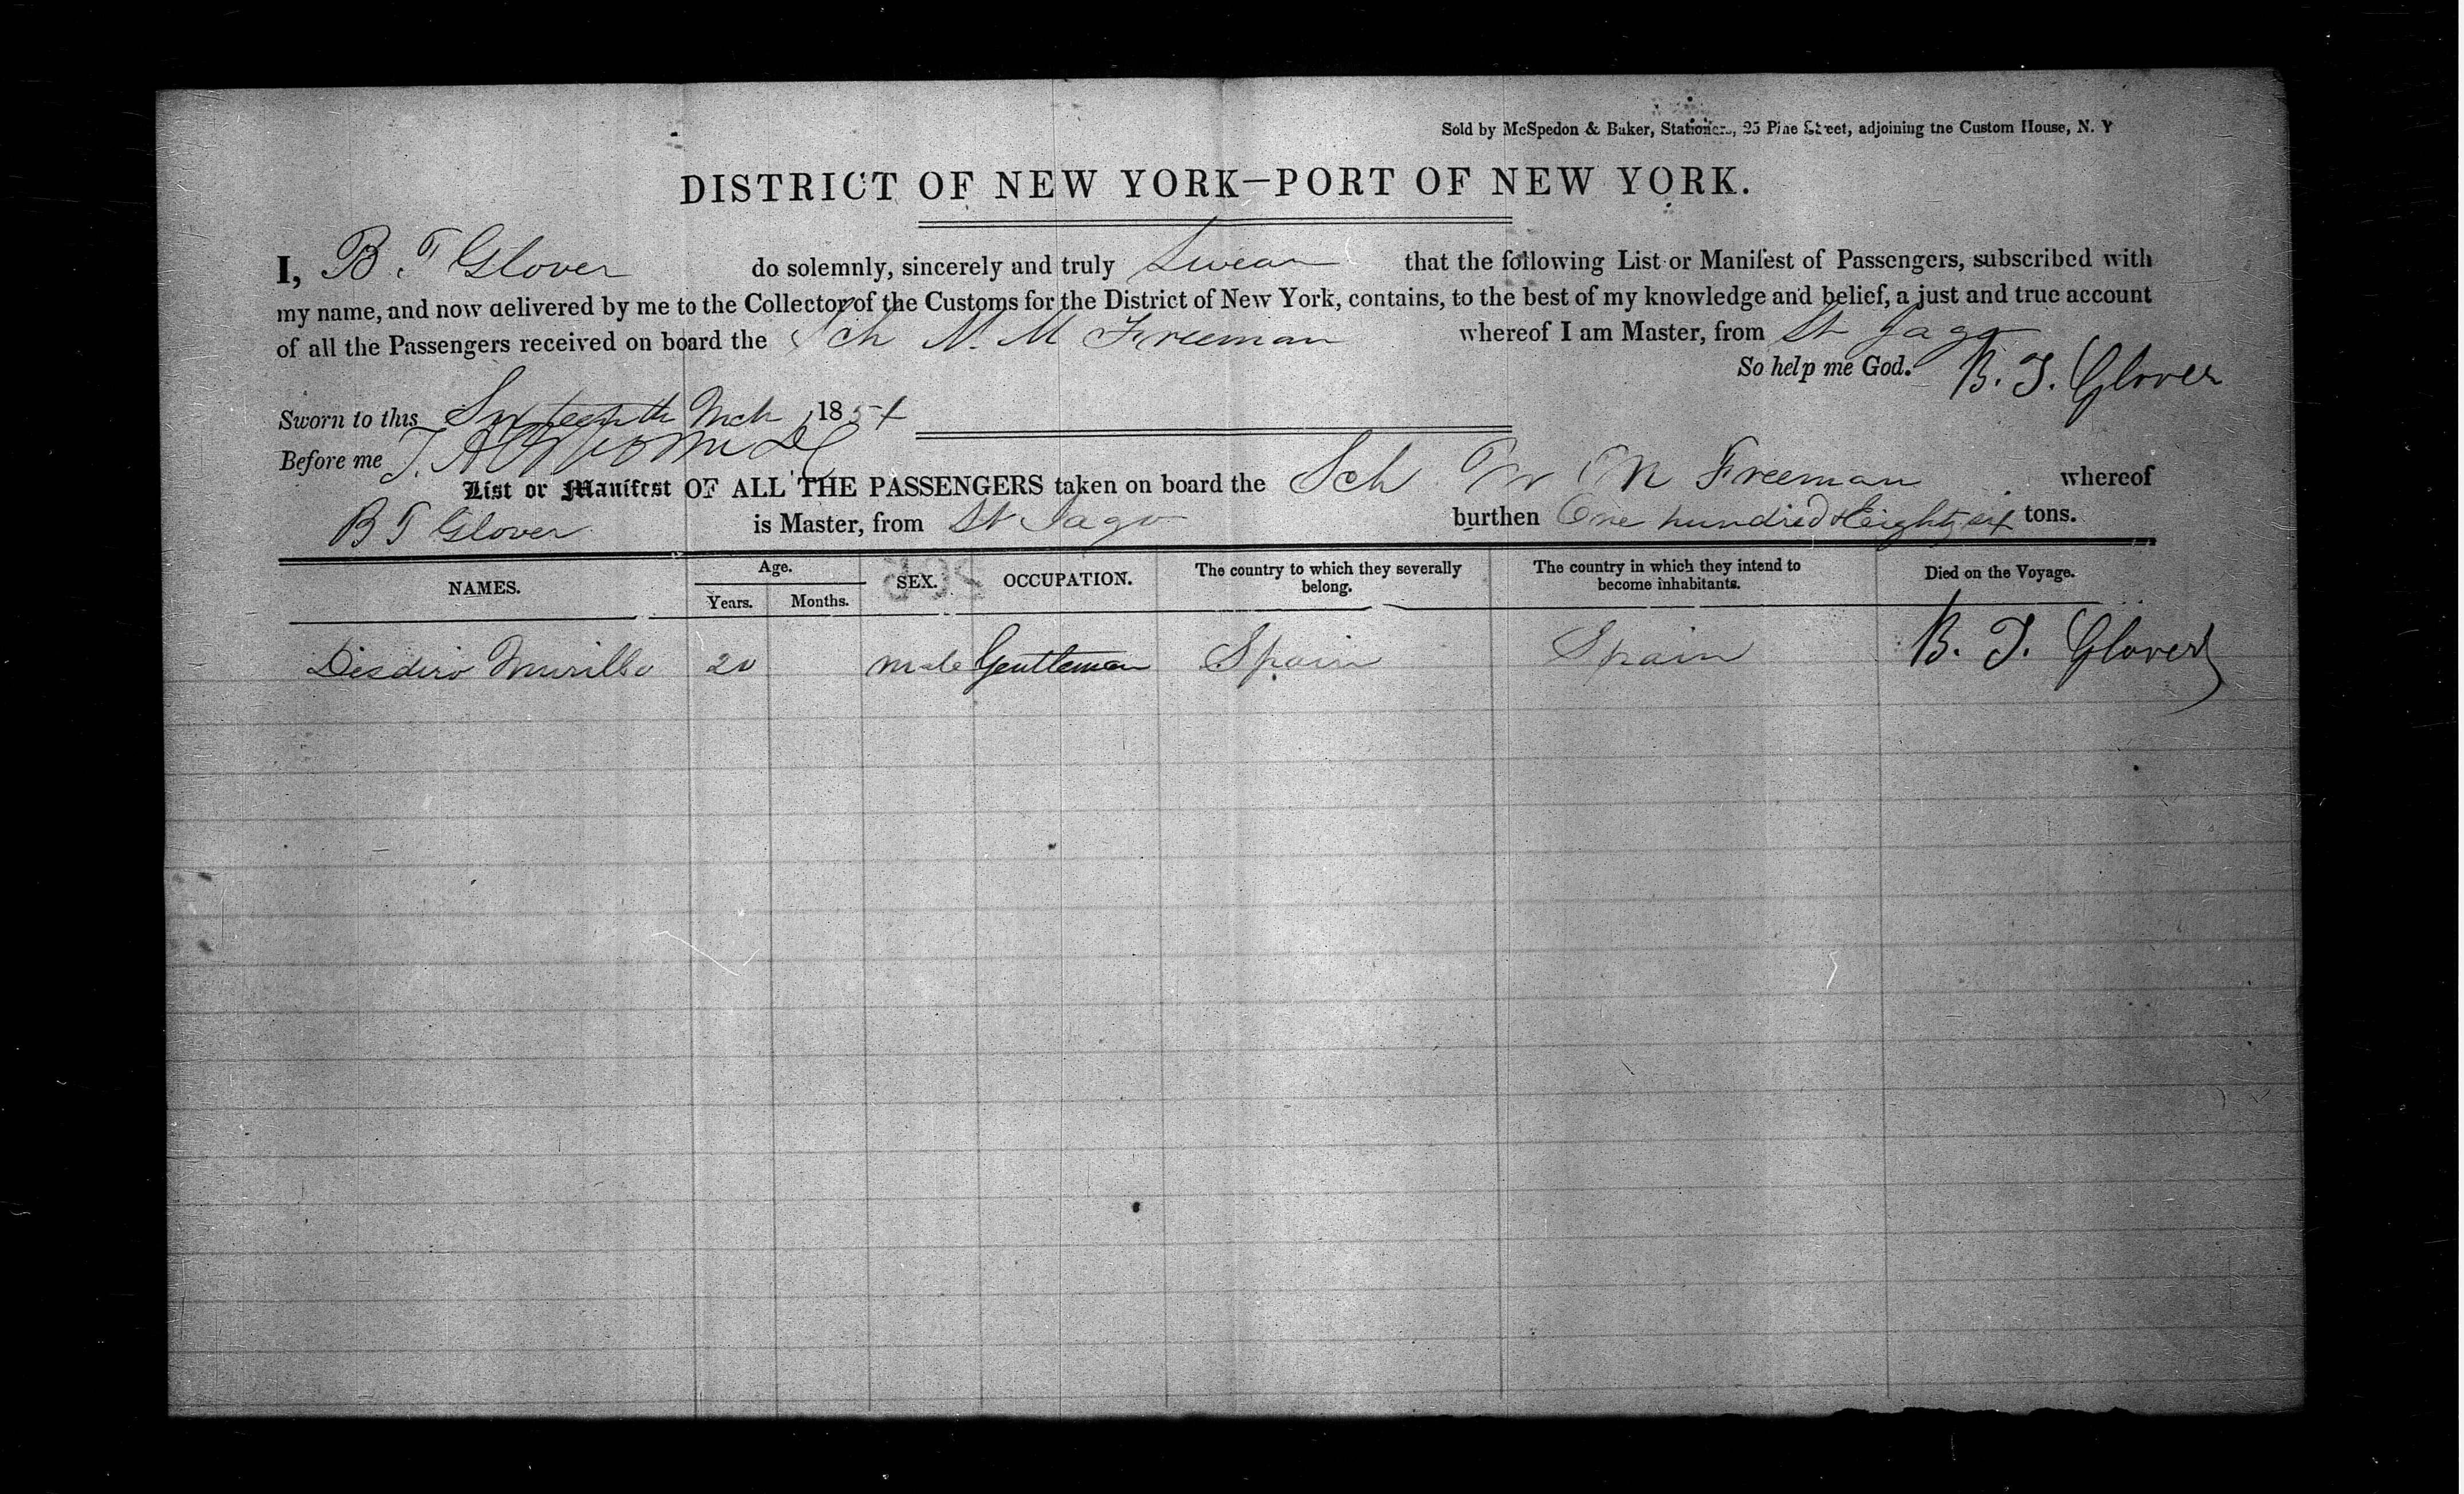 Sold by McSpedon & Baker, Stationers, 25 Pine Street, adjoining the Custom House, N. Y
DISTRICT OF NEW YORK—PORT OF NEW YORK.
I, B T Glover do solemnly, sincerely and truly Swear that the following List or Manifest of Passengers, subscribed with
my name, and now delivered by me to the Collector of the Customs for the District of New York, contains, to the best of my knowledge and belief, a just and true account
of all the Passengers received on board the Sch M Freeman whereof I am Master, from St Jago
So help me God. B. T. Glover
Sworn to this Sixteenth Mch 1854
Before me
List or Manifest OF ALL THE PASSENGERS taken on board the Sch M Freeman whereof
B T Glover is Master, from St Jago burthen One hundred & Eighty six tons.
NAMES. Age. Years. Months. SEX. OCCUPATION. The country to which they severally belong. The country in which they intend to become inhabitants. Died on the Voyage.
Murillo 20 male Gentleman Spain Spain B. T. Glover